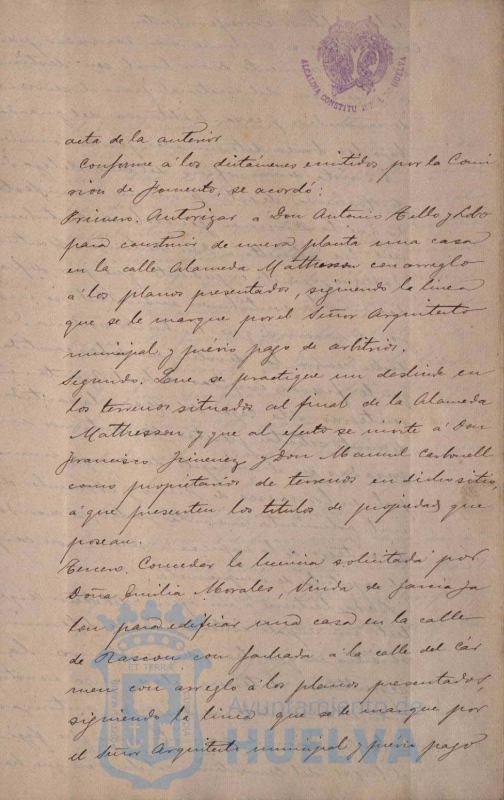 ALCALDIA CONSTITU DE HUELVA
acta de la anterior
Conforme á los dictámenes emitidos por la Comi
sion de Fomento, se acordó:
Primero. Autorizar a Don Antonio Tello y Lobo
para construir de nueva planta una casa
en la calle Alameda Mathesson con arreglo
á los planos presentados, siguiendo la linea
que se le marque por el Señor Arquitecto
municipal y prévio pago de arbitrios.
Segundo. Que se practique un deslinde en
los terrenos situados al final de la Alameda
Mathesson y que al efecto se invite á Don
Francisco Jimenez y Don Manuel Carbonell
como propietarios de terrenos en dicho sitio,
á que presenten los títulos de propiedad que
posean.
Tercero. Conceder la licencia solicitada por
Doña Emilia Morales, Viuda de Garcia Ja
lon para edificar una casa en la calle
de Rascon con fachada á la calle del Cár
men con arreglo á los planos presentados,
siguiendo la linea que se le marque por
el Señor Arquitecto municipal y previo pago
Ayuntamiento de
HUELVA